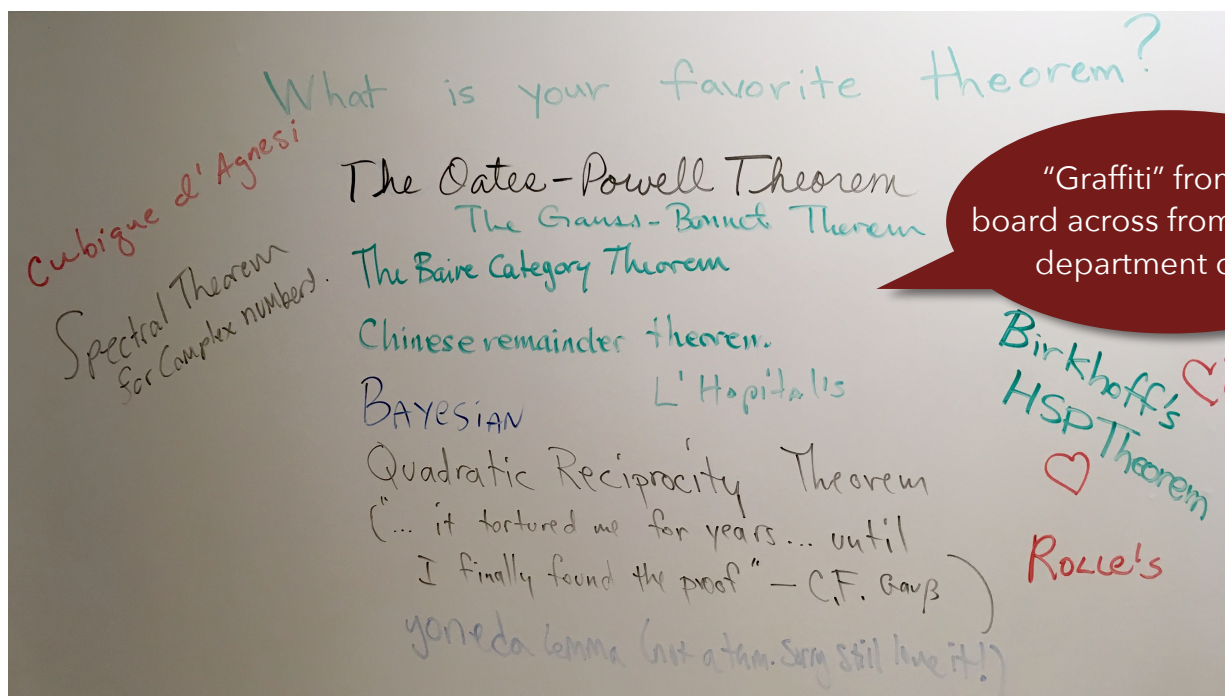 What is your favorite theorem?
Cubique d'Agnesi
Spectral Theorem
for Complex numbers.
The Oates-Powell Theorem
The Gauss-Bonnet Therem
The Baire Category Theorem
Chinese remainder theorem.
L'Hopital's
BAYESiAN
Quadratic Reciprocity Theorem
("... it tortured me for years... until
I finally found the proof" — C.F. Gauß)
yoneda lemma (not a thm. Sorry still love it!)
"Graffiti" from
board across from
department
Birkhoff's
HSP Theorem
ROLLE's